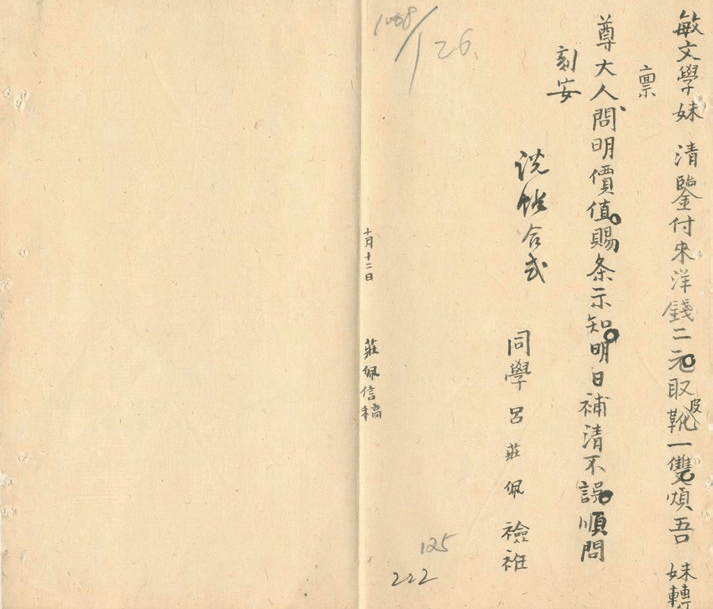 敏文學妹 清鑒付來洋錢二元取皮靴一雙煩吾 妹轉
稟
尊大人問明價值賜条示知明日補清不誤順問
刻安
説帖合式
同學 呂莊佩 襝衽
十月十二日 莊佩信稿
126
125
222